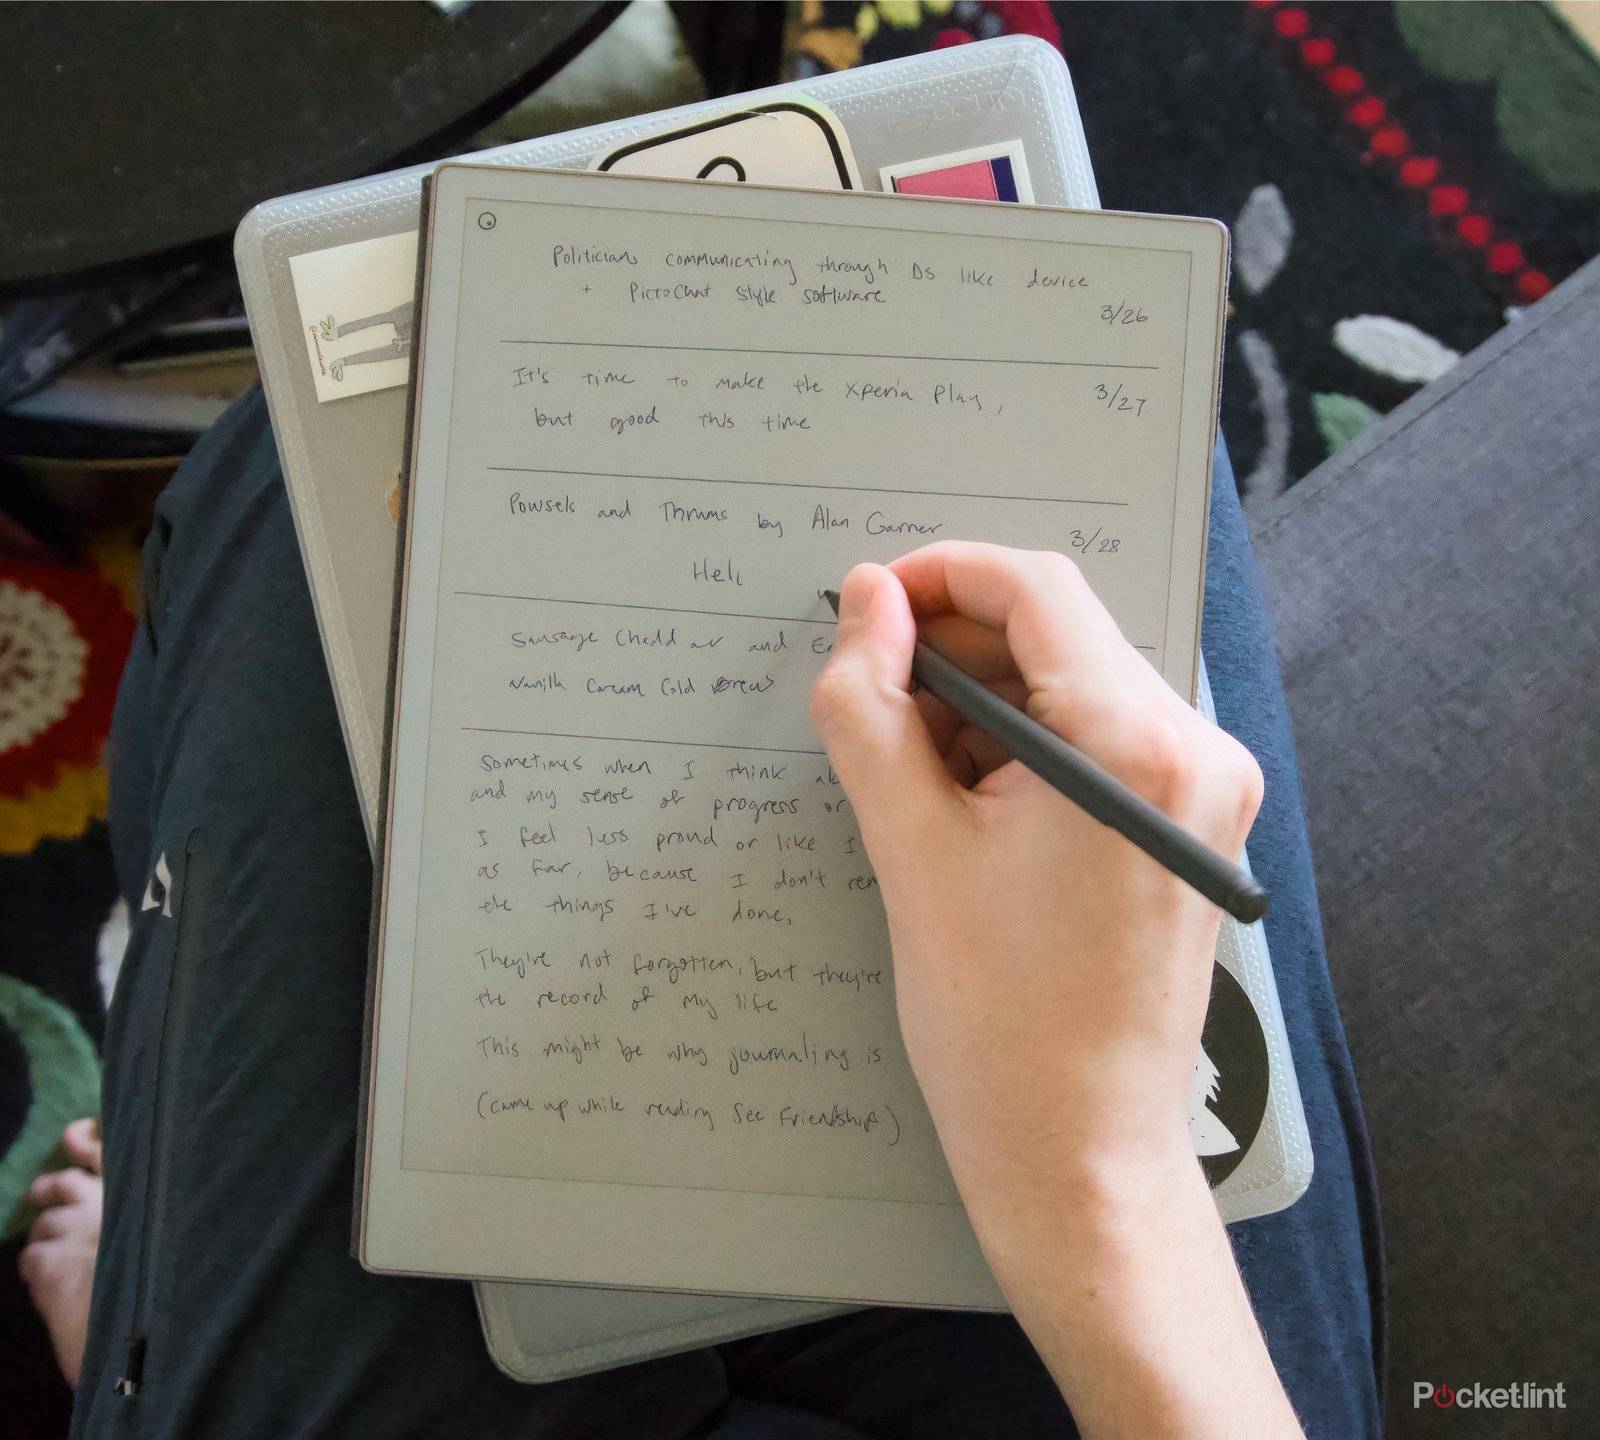 Politicians communicating through DS like device
+ PictoChat style software
3/26
It's time to make the Xperia Play,
3/27
but good this time
Powsels and Thrums by Alan Garner
3/28
Hell
Sausage Cheddar and
Vanilla Cream Cold Brews
Sometimes when I think
and my sense of progress or
I feel less proud or like I
as far, because I don't
the things I've done,
They're not forgotten, but they're
the record of my life
This might be why journaling is
(came up while reading See Friendship)
Pocket-lint